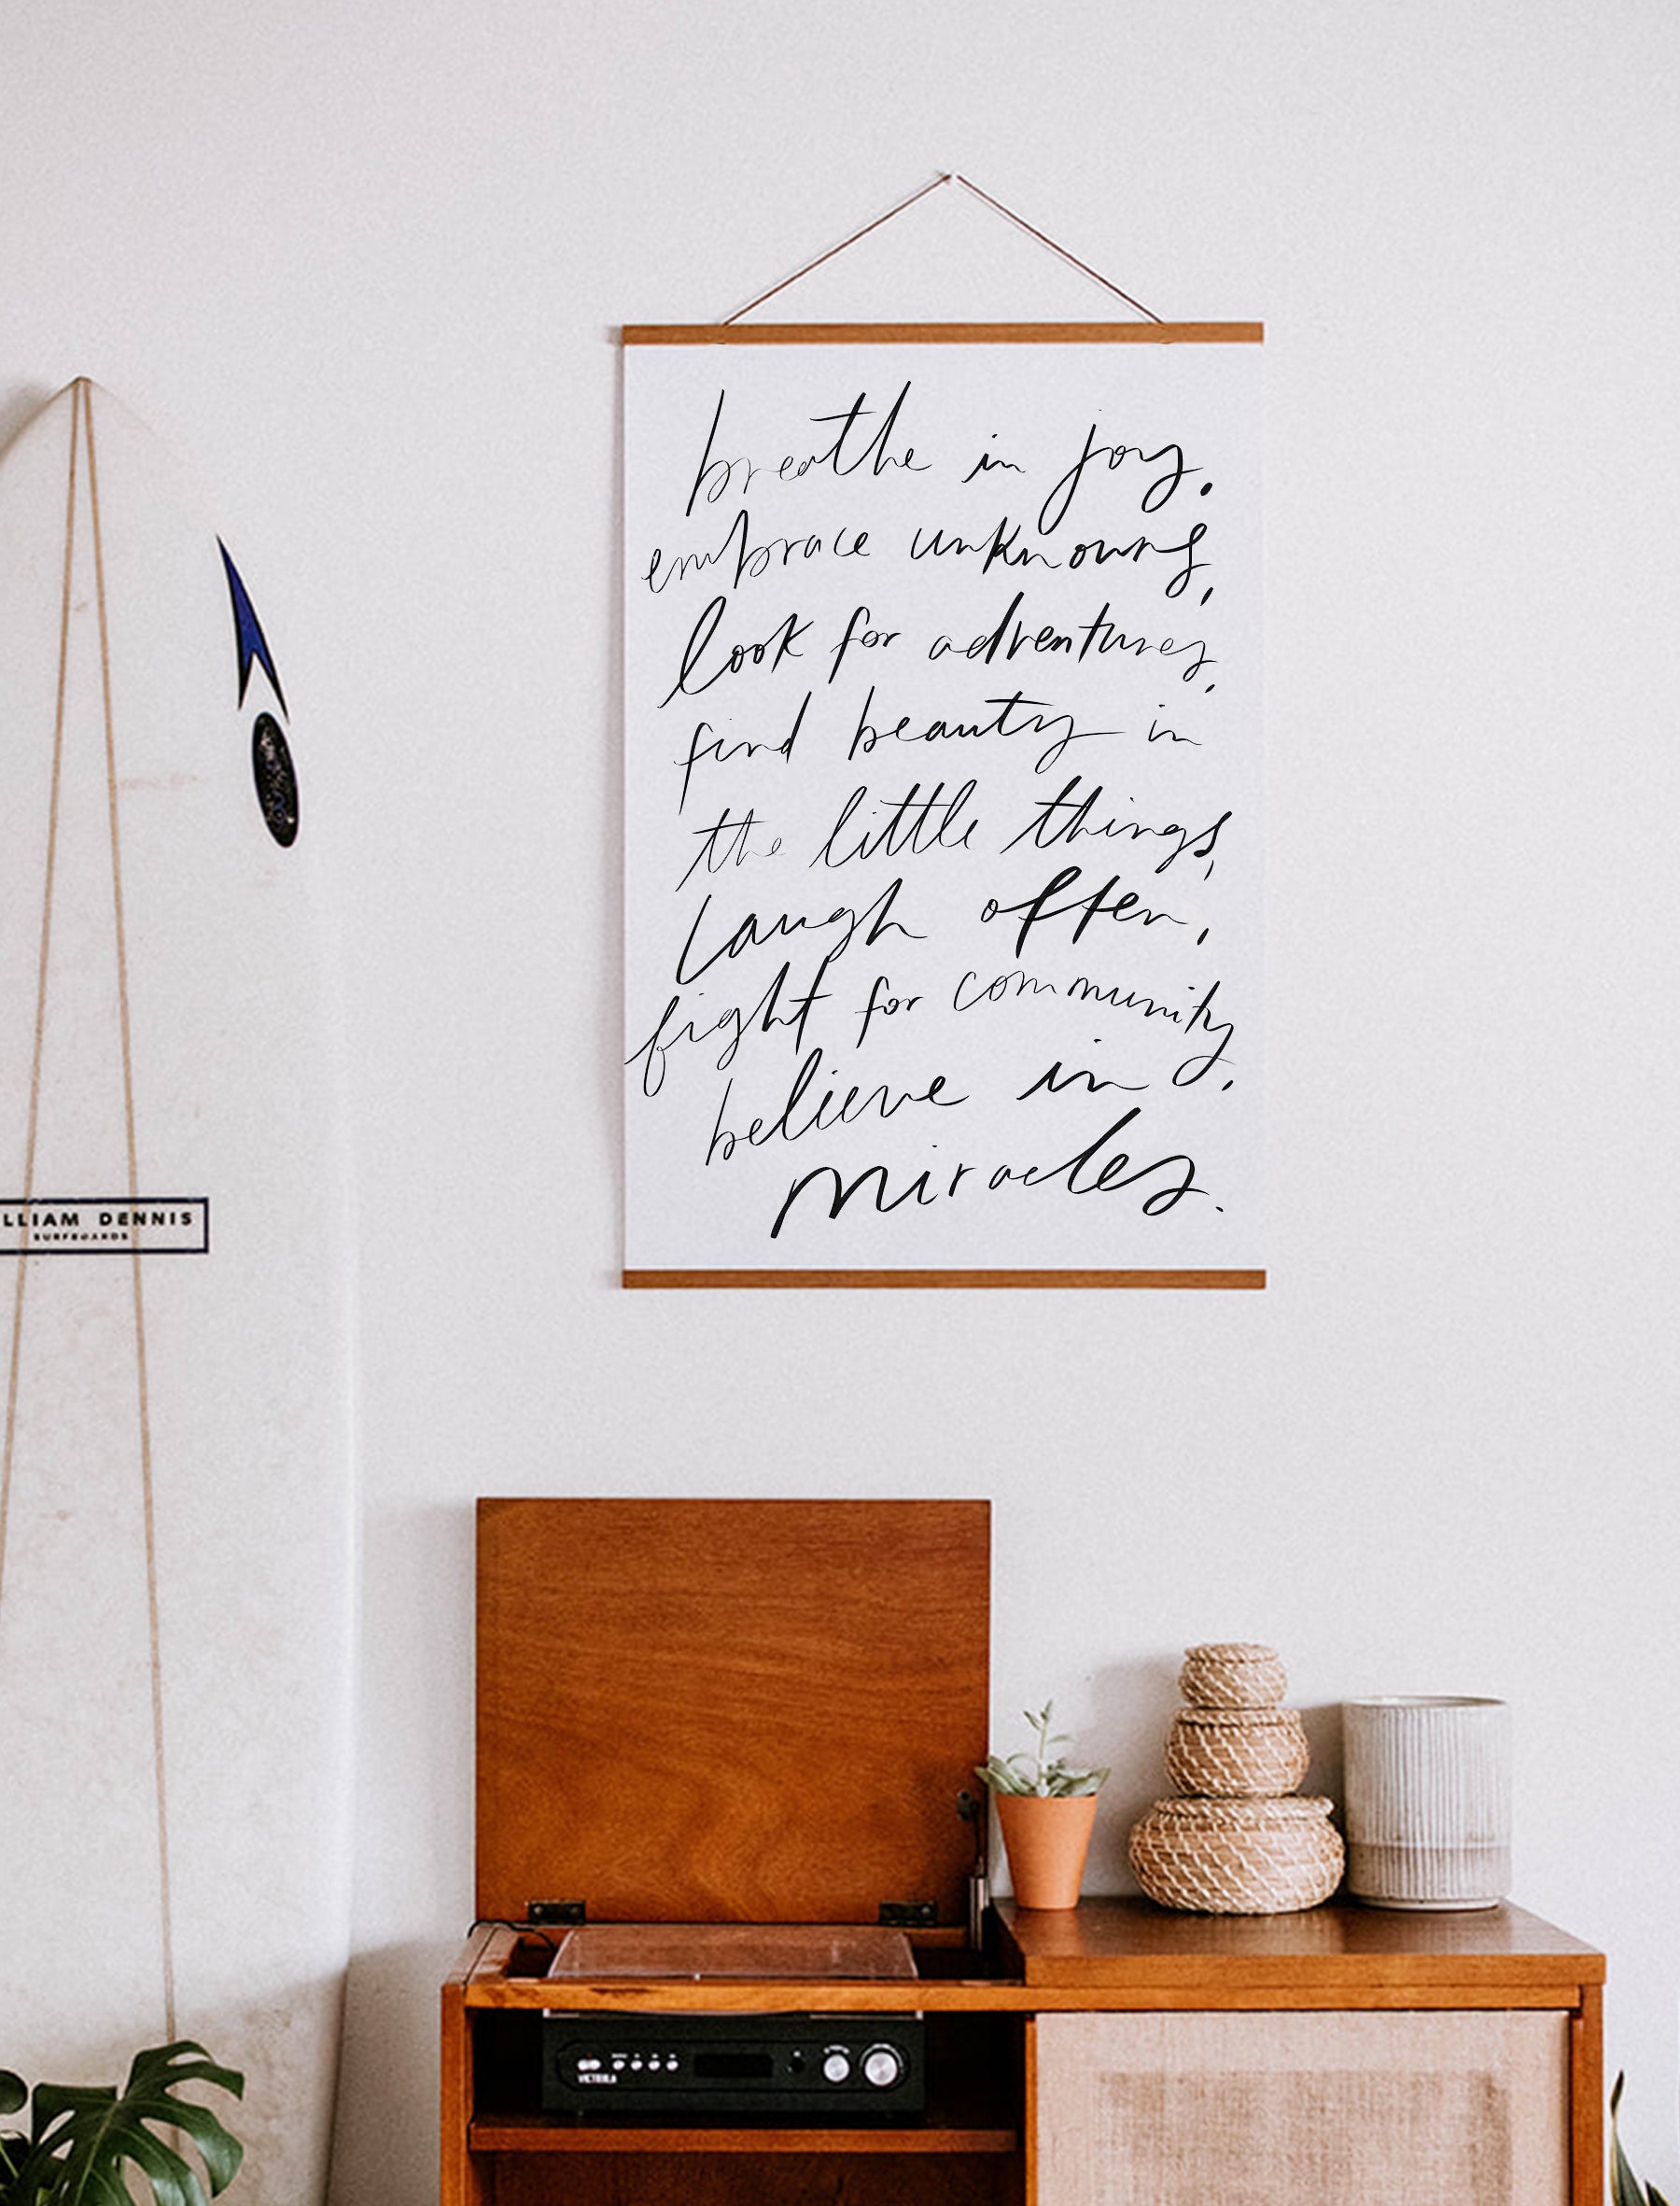 breathe in joy.
embrace unknowns,
look for adventures,
find beauty in
the little things,
laugh often,
fight for community,
believe in
miracles.
LLIAM DENNIS
SURFBOARDS
VICTROLA